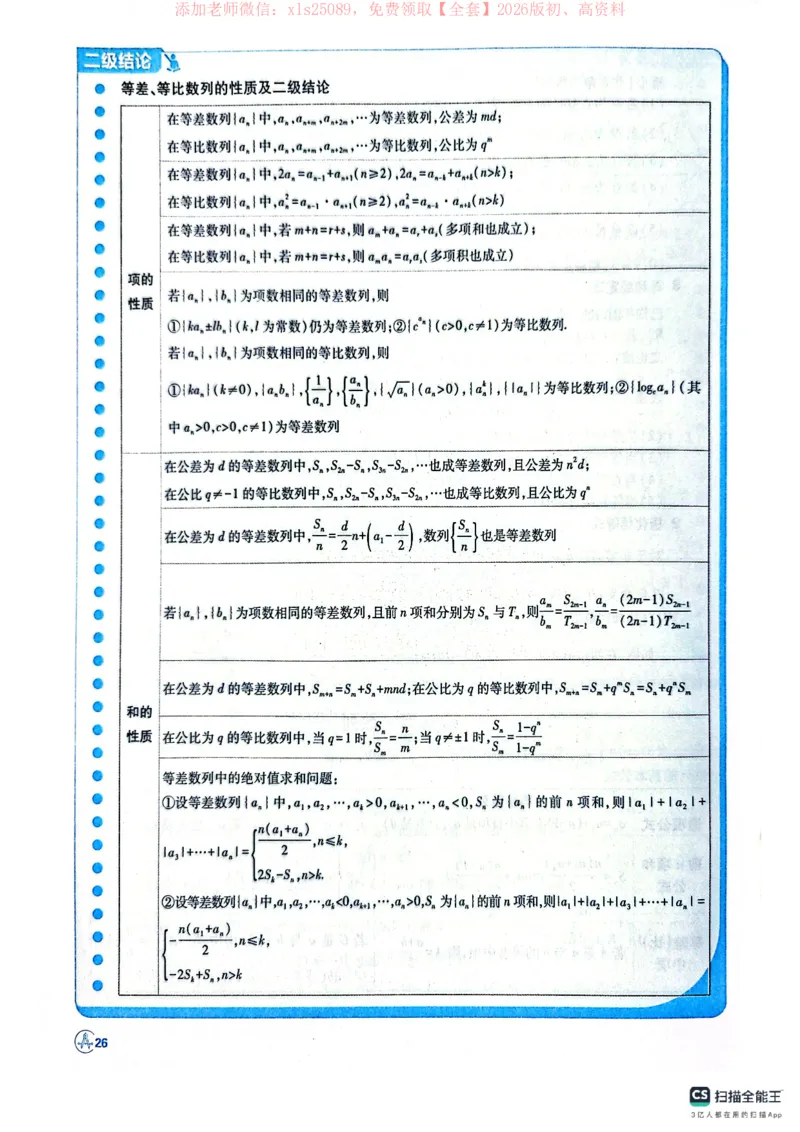 添加老师微信：xls25089，免费领取【全套】2026版初、高资料
二级结论
等差、等比数列的性质及二级结论
在等差数列{aₙ}中,aₙ,aₙ₊ₘ,aₙ₊₂ₘ,…为等差数列,公差为md;
在等比数列{aₙ}中,aₙ,aₙ₊ₘ,aₙ₊₂ₘ,…为等比数列,公比为qᵐ
在等差数列{aₙ}中,2aₙ=aₙ₋₁+aₙ₊₁(n≥2),2aₙ=aₙ₋ₖ+aₙ₊ₖ(n>k);
在等比数列{aₙ}中,aₙ²=aₙ₋₁·aₙ₊₁(n≥2),aₙ²=aₙ₋ₖ·aₙ₊ₖ(n>k)
在等差数列{aₙ}中,若m+n=r+s,则aₘ+aₙ=aᵣ+aₛ(多项和也成立);
在等比数列{aₙ}中,若m+n=r+s,则aₘaₙ=aᵣaₛ(多项积也成立)
项的
性质
若{aₙ},{bₙ}为项数相同的等差数列,则
①{kaₙ±lbₙ}(k,l为常数)仍为等差数列;②{c^(aₙ)}(c>0,c≠1)为等比数列.
若{aₙ},{bₙ}为项数相同的等比数列,则
①{kaₙ}(k≠0),{aₙbₙ},{1/aₙ},{aₙ/bₙ},{√aₙ}(aₙ>0),{aₙᵏ},{|aₙ|}为等比数列;②{log_c aₙ}(其
中aₙ>0,c>0,c≠1)为等差数列
在公差为d的等差数列中,Sₙ,S₂ₙ-Sₙ,S₃ₙ-S₂ₙ,…也成等差数列,且公差为n²d;
在公比q≠-1的等比数列中,Sₙ,S₂ₙ-Sₙ,S₃ₙ-S₂ₙ,…也成等比数列,且公比为qⁿ
在公差为d的等差数列中,Sₙ/n=d/2 n+(a₁-d/2),数列{Sₙ/n}也是等差数列
若{aₙ},{bₙ}为项数相同的等差数列,且前n项和分别为Sₙ与Tₙ,则aₘ/bₘ=S₂ₘ₋₁/T₂ₘ₋₁,aₙ/bₘ=(2m-1)S₂ₙ₋₁/(2n-1)T₂ₘ₋₁
在公差为d的等差数列中,Sₘ₊ₙ=Sₘ+Sₙ+mnd;在公比为q的等比数列中,Sₘ₊ₙ=Sₘ+qᵐSₙ=Sₙ+qⁿSₘ
和的
性质
在公比为q的等比数列中,当q=1时,Sₙ/Sₘ=n/m;当q≠±1时,Sₙ/Sₘ=(1-qⁿ)/(1-qᵐ)
等差数列中的绝对值求和问题:
①设等差数列{aₙ}中,a₁,a₂,…,aₖ>0,aₖ₊₁,…,aₙ<0,Sₙ为{aₙ}的前n项和,则|a₁|+|a₂|+
|a₃|+…+|aₙ|={n(a₁+aₙ)/2,n≤k,
2Sₖ-Sₙ,n>k.
②设等差数列{aₙ}中,a₁,a₂,…,aₖ<0,aₖ₊₁,…,aₙ>0,Sₙ为{aₙ}的前n项和,则|a₁|+|a₂|+|a₃|+…+|aₙ|=
{-n(a₁+aₙ)/2,n≤k,
-2Sₖ+Sₙ,n>k
26
CS 扫描全能王
3亿人都在用的扫描App